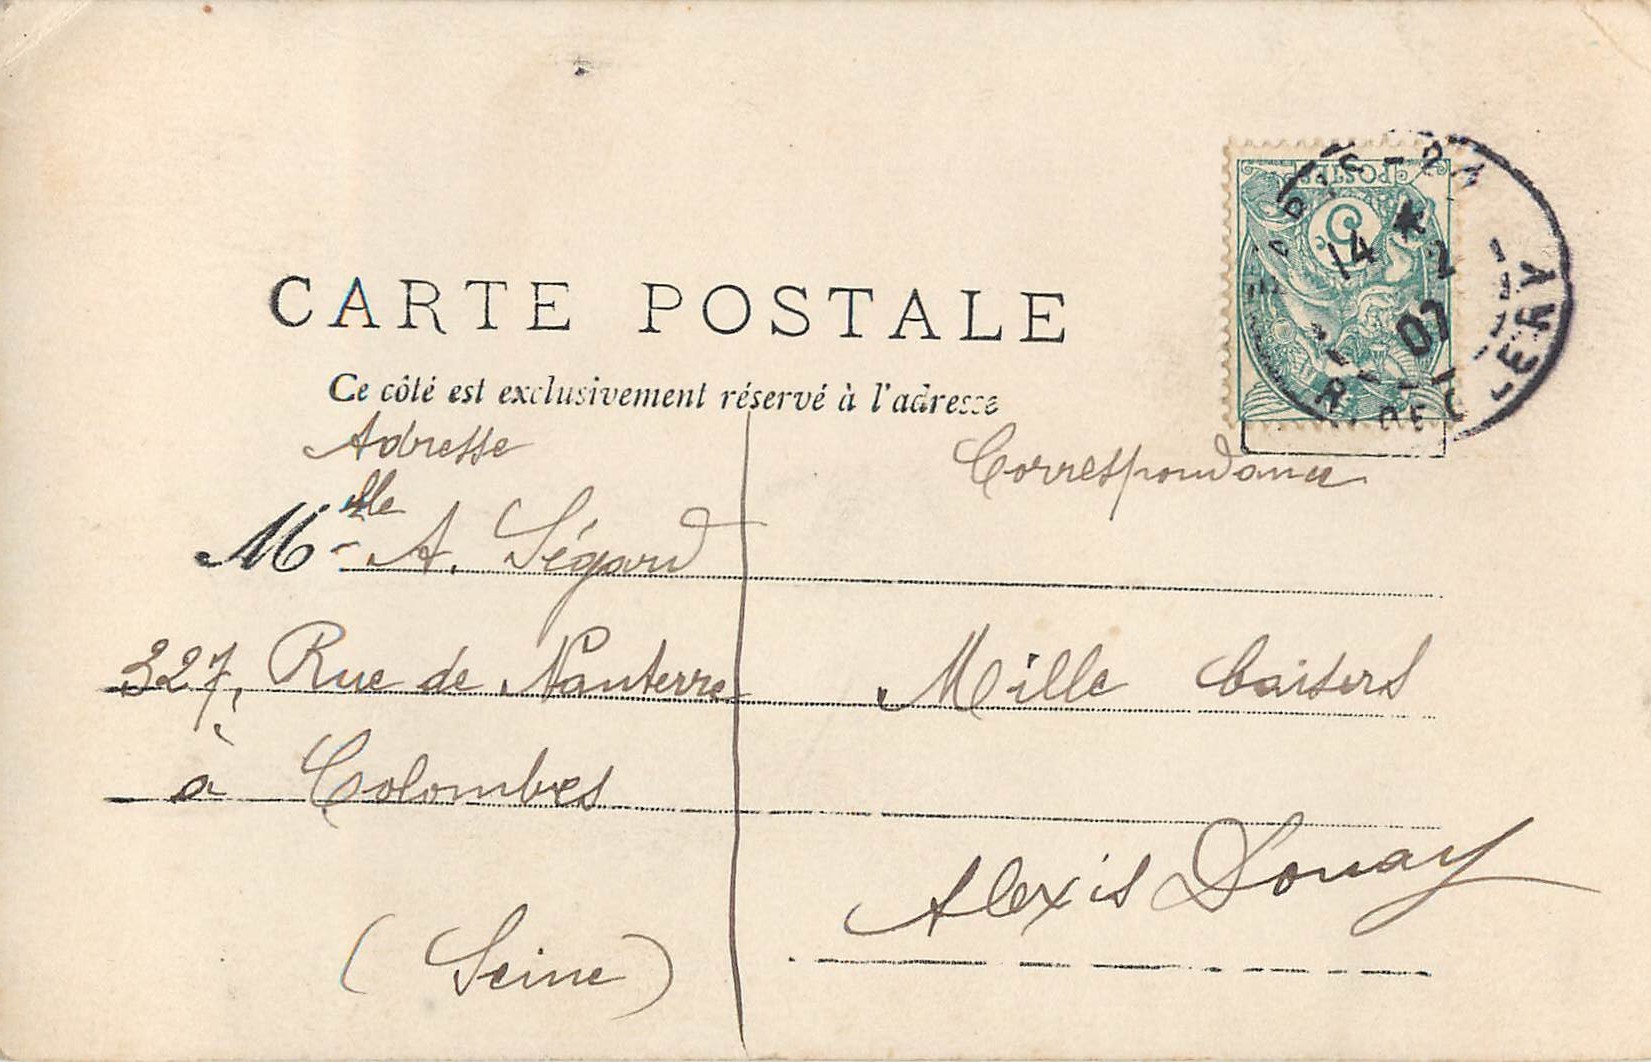 CARTE POSTALE
Ce côté est exclusivement réservé à l'adresse
Adresse
Mlle A. Ségard
327, Rue de Nanterre
à Colombes
(Seine)
Correspondance
Mille baisers
Alexis Douay
POSTES
5 c
PARIS-24
14 2
07
R. DE CLERY